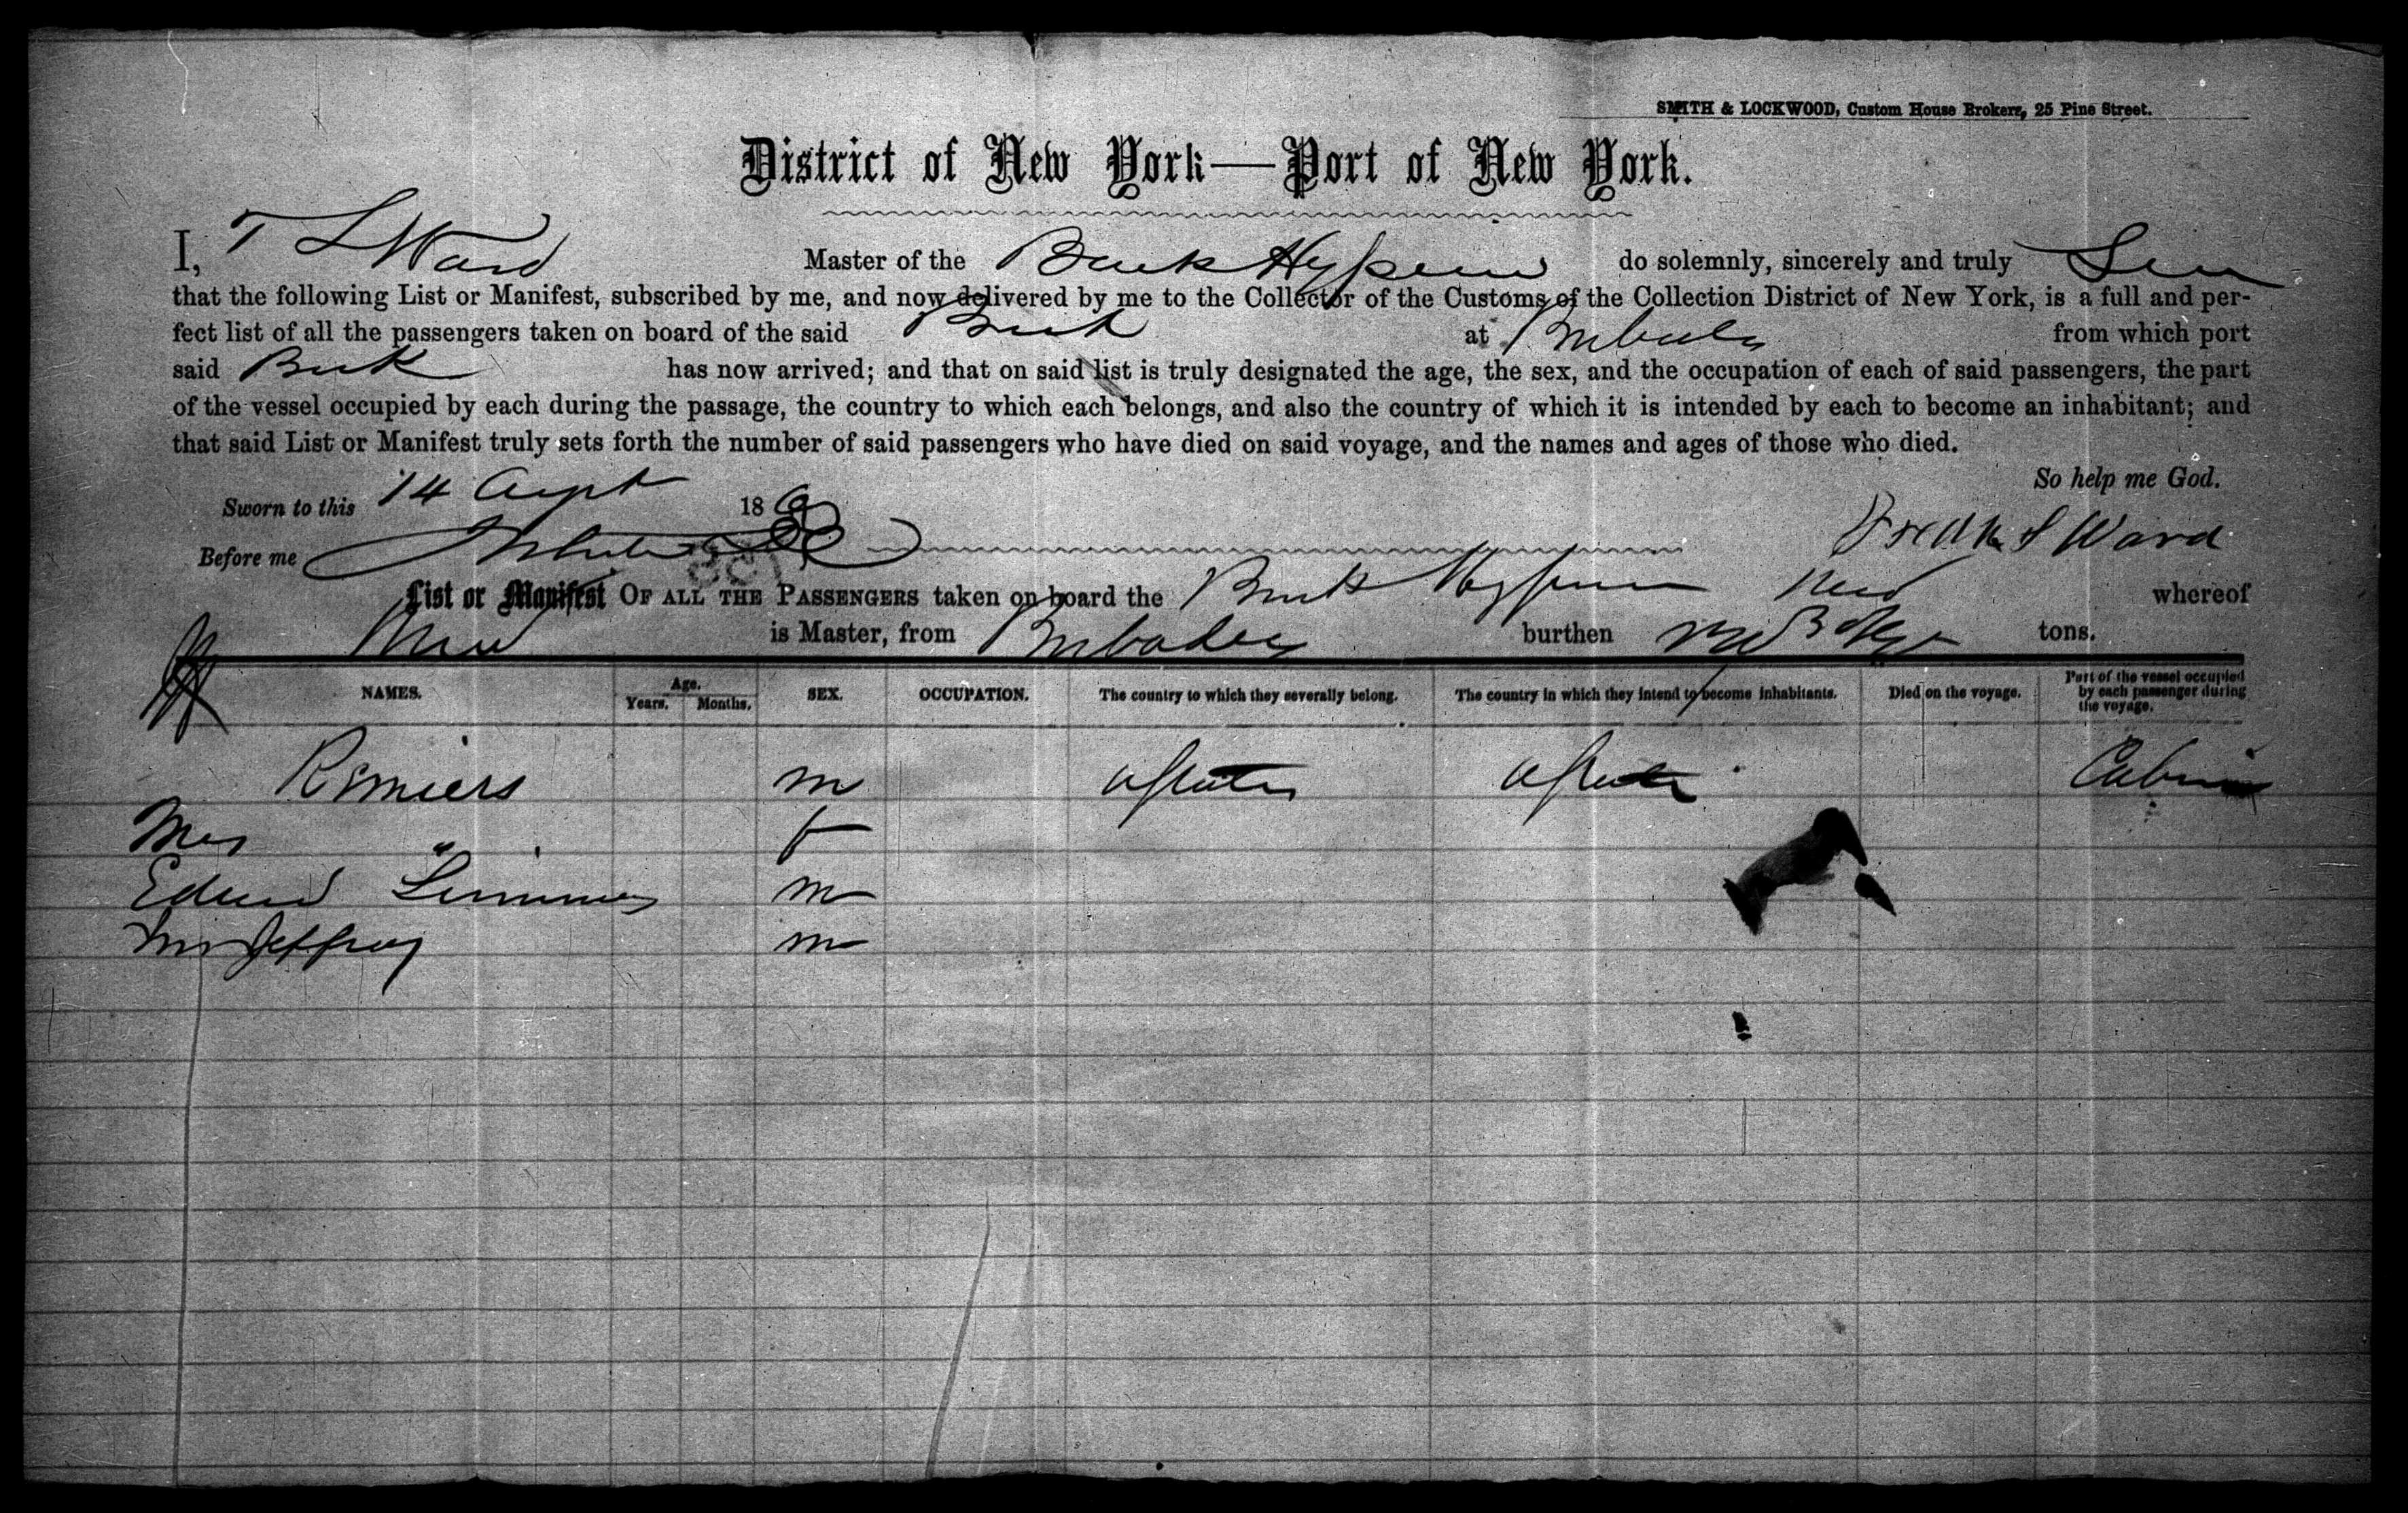 SMITH & LOCKWOOD, Custom House Brokers, 25 Pine Street.
District of New York—Port of New York.
I, Ward Master of the Bark do solemnly, sincerely and truly
that the following List or Manifest, subscribed by me, and now delivered by me to the Collector of the Customs of the Collection District of New York, is a full and per-
fect list of all the passengers taken on board of the said Bark at from which port
said Bark has now arrived; and that on said list is truly designated the age, the sex, and the occupation of each of said passengers, the part
of the vessel occupied by each during the passage, the country to which each belongs, and also the country of which it is intended by each to become an inhabitant; and
that said List or Manifest truly sets forth the number of said passengers who have died on said voyage, and the names and ages of those who died.
So help me God.
Sworn to this 14 186
Before me
Fredk S Ward
List or Manifest OF ALL THE PASSENGERS taken on board the Bark whereof
is Master, from Barbadoes burthen tons.
NAMES. Age. Years. Months. SEX. OCCUPATION. The country to which they severally belong. The country in which they intend to become inhabitants. Died on the voyage. Part of the vessel occupied by each passenger during the voyage.
m Cabin
Mrs " f
m
Mr Jeffrey m